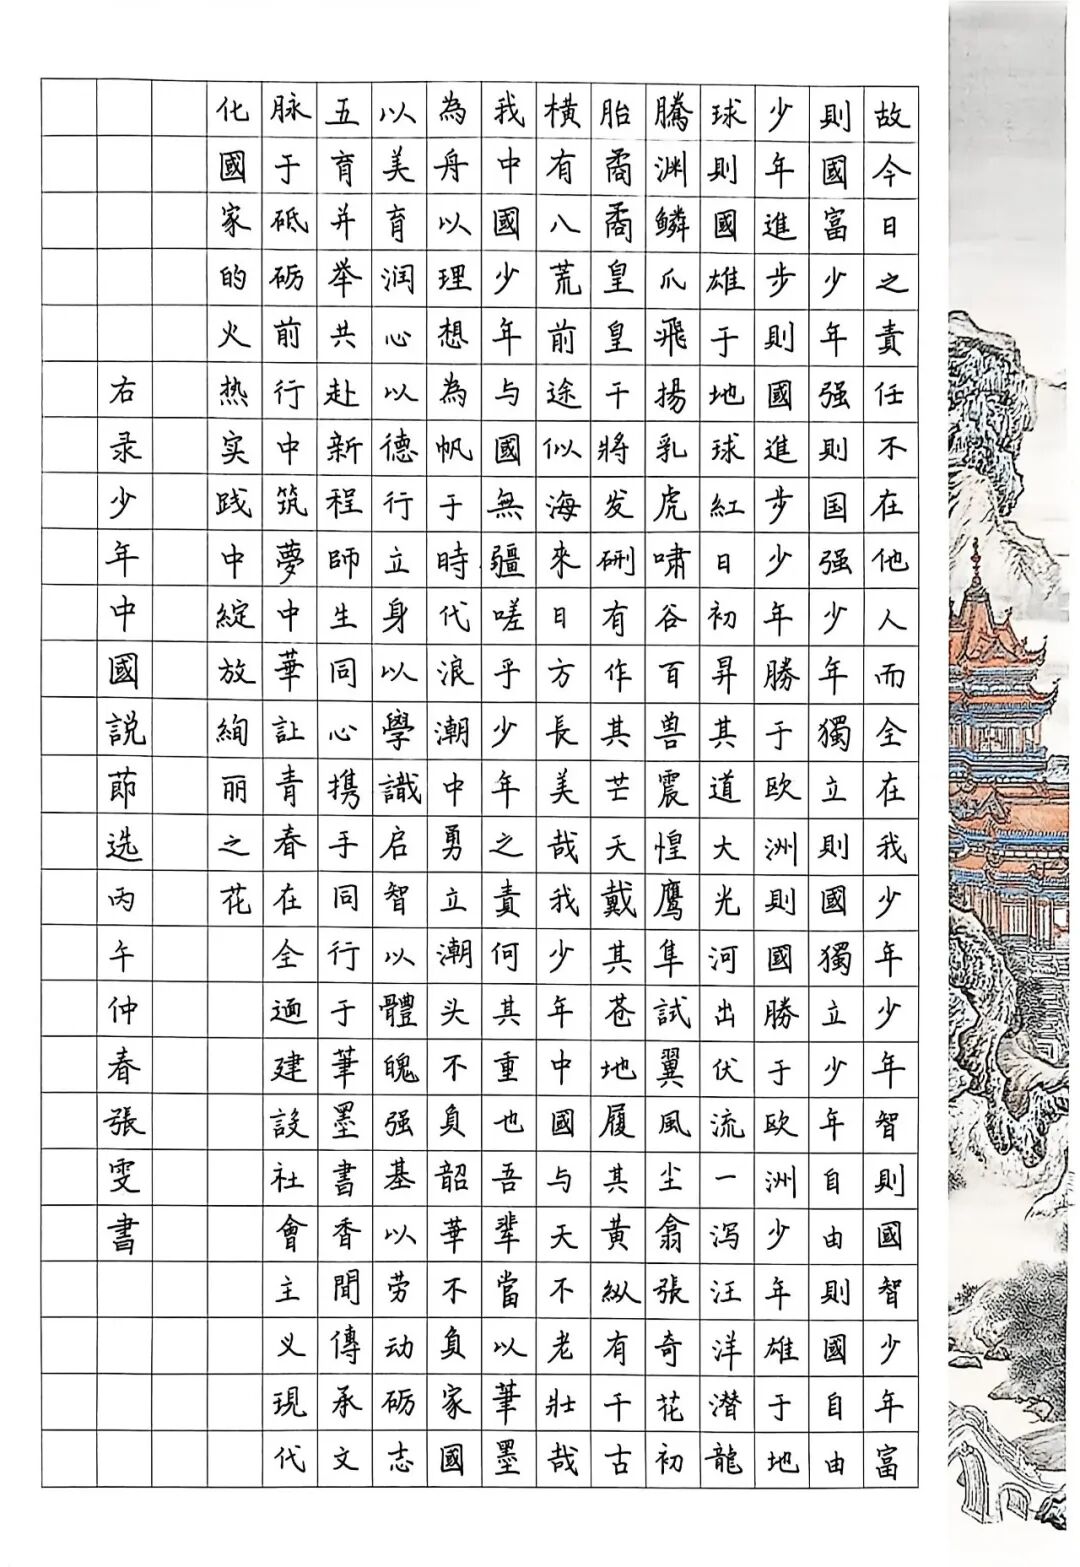 故今日之責任不在他人而全在我少年少年智則國智少年富
則國富少年强則国强少年獨立則國獨立少年自由則國自由
少年進步則國進步少年勝于欧洲則國勝于欧洲少年雄于地
球則國雄于地球紅日初昇其道大光河出伏流一泻汪洋潜龍
騰渊鱗爪飛揚乳虎啸谷百兽震惶鹰隼試翼風尘翕張奇花初
胎矞矞皇皇干將发硎有作其芒天戴其苍地履其黄纵有千古
横有八荒前途似海來日方長美哉我少年中國与天不老壮哉
我中國少年与國無疆嗟乎少年之責何其重也吾辈當以筆墨
為舟以理想為帆于時代浪潮中勇立潮头不負韶華不負家國
以美育润心以德行立身以學識启智以體魄强基以劳动砺志
五育并举共赴新程師生同心携手同行于筆墨書香間傳承文
脉于砥砺前行中筑夢中華让青春在全面建設社會主义現代
化國家的火热实践中綻放绚丽之花
右录少年中國説節选丙午仲春張雯書